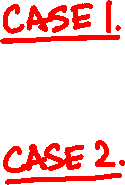 CASE 1.
CASE 2.